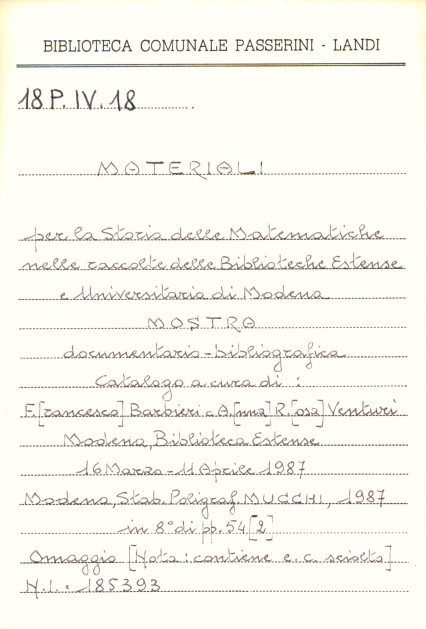 BIBLIOTECA COMUNALE PASSERINI - LANDI
18 P. IV. 18
MATERIALI
per la Storia delle Matematiche
nelle raccolte delle Biblioteche Estense
e Universitaria di Modena
MOSTRA
documentario-bibliografica
Catalogo a cura di :
F.[rancesco] Barbieri e A.[nna] R.[osa] Venturi
Modena, Biblioteca Estense
16 Marzo - 11 Aprile 1987
Modena, Stab. Poligraf. MUCCHI, 1987
in 8° di pp. 54 [2]
Omaggio [Nota : contiene e. c. sciolto]
N. I. : 185393